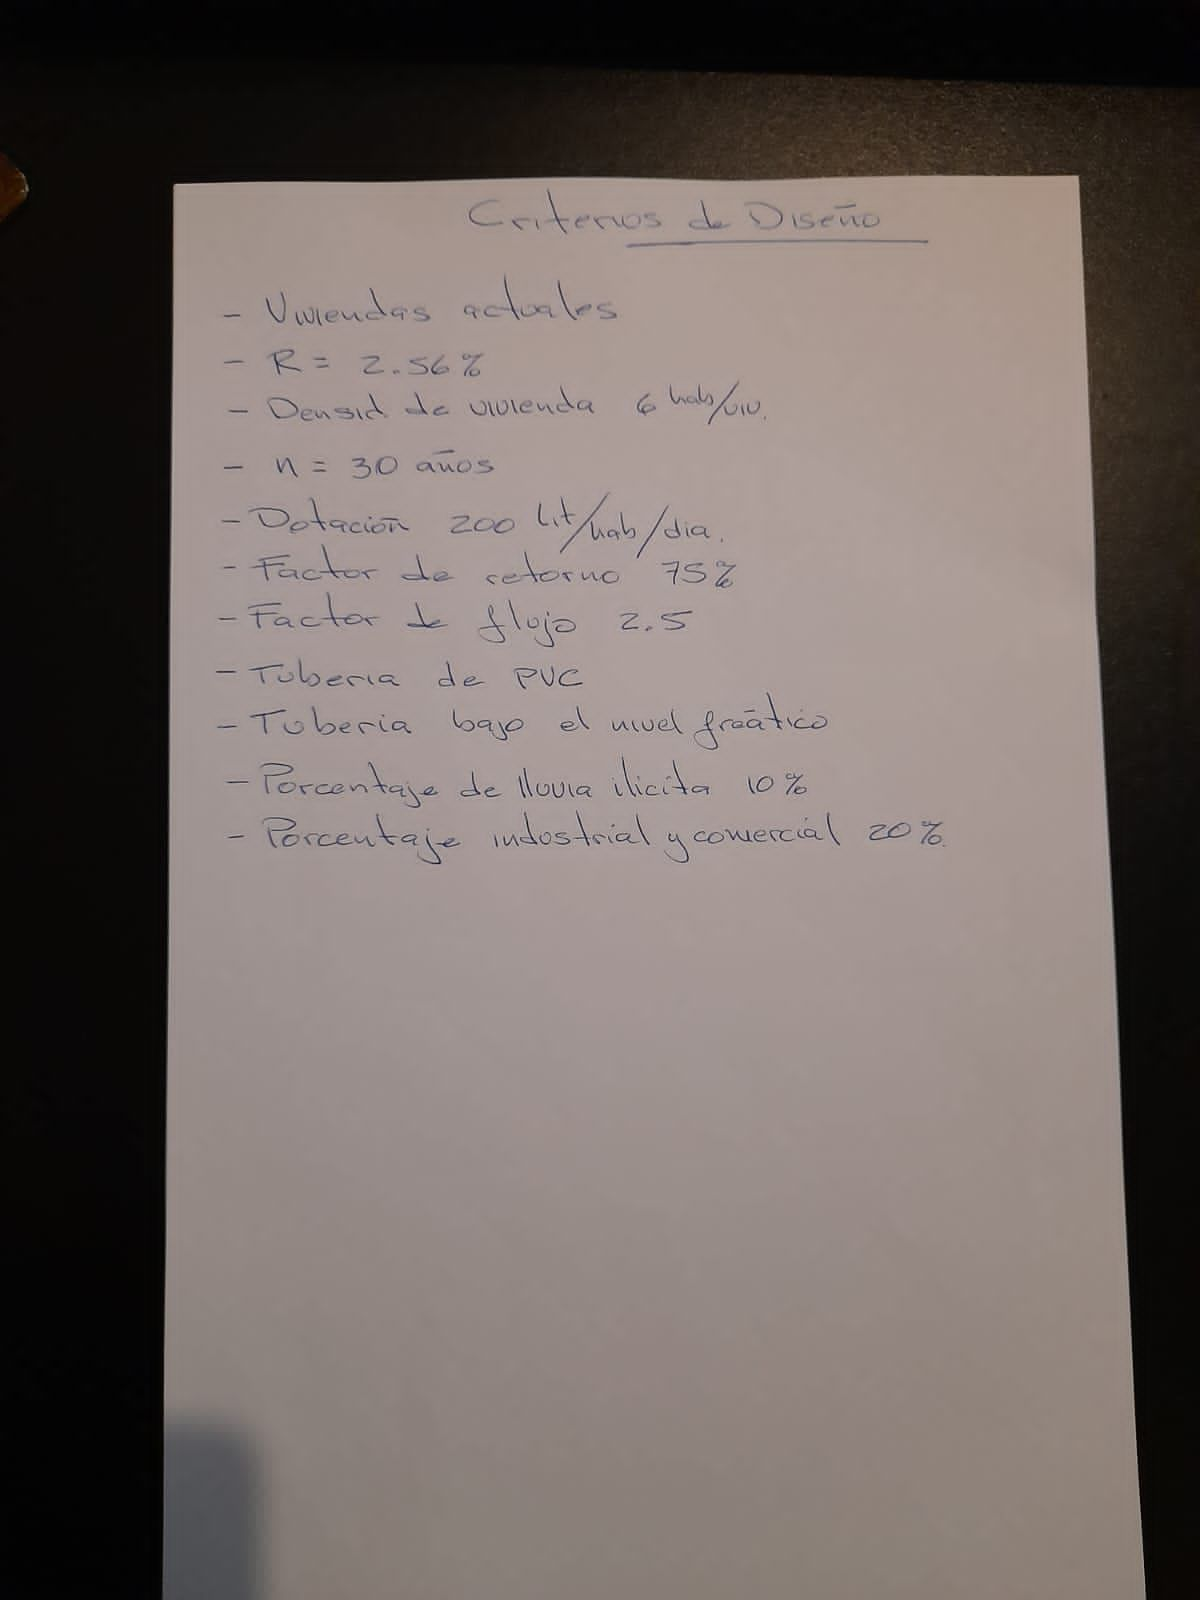 Criterios de Diseño
- Viviendas actuales
- R = 2.56%
- Densid. de vivienda 6 hab/viv.
- n = 30 años
- Dotación 200 Lit/hab/dia.
- Factor de retorno 75%
- Factor de flujo 2.5
- Tuberia de PVC
- Tuberia bajo el nivel freático
- Porcentaje de lluvia ilicita 10%
- Porcentaje industrial y comercial 20%.